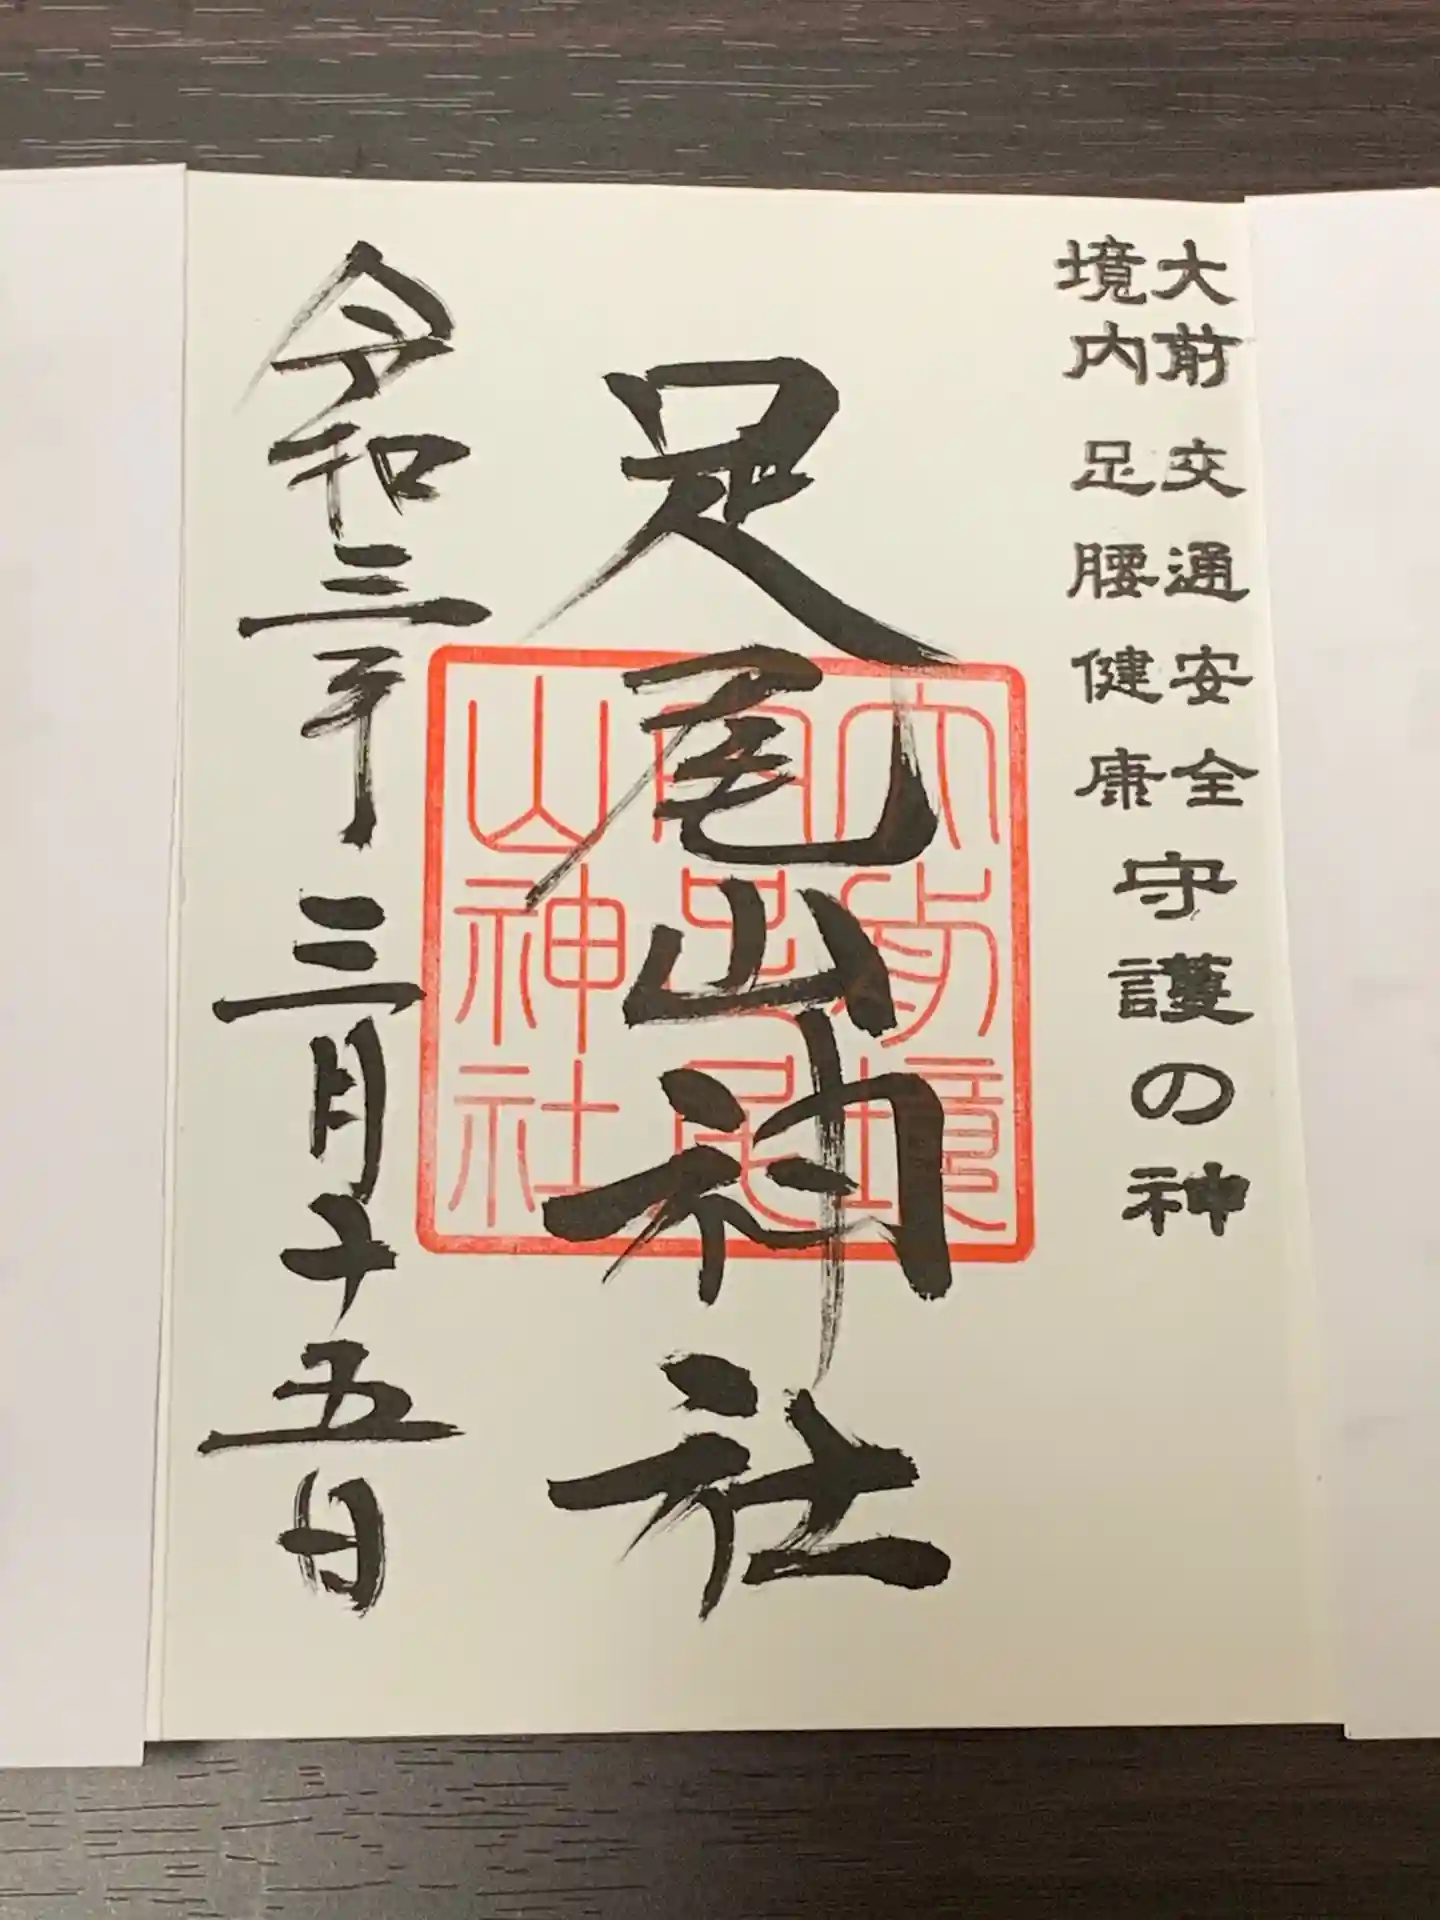 大前 交通安全
境内 足腰健康
守護の神
足尾山神社
大前境
内足尾
山神社
令和三年三月十五日